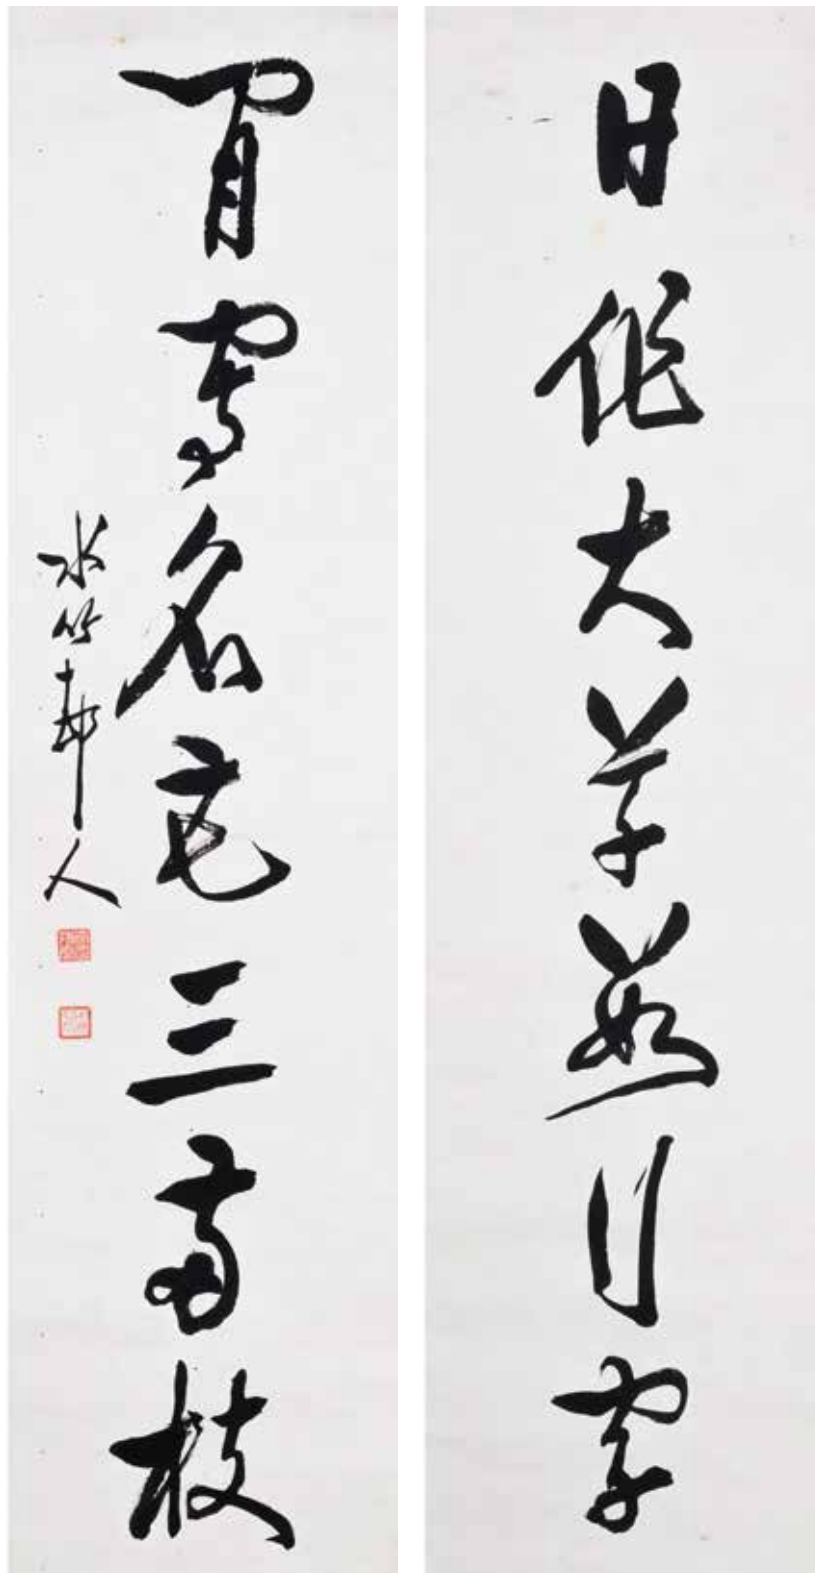 日作大草數行字
閒寫名花三兩枝
水竹邨人